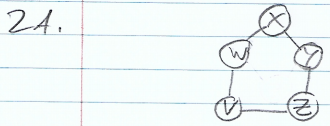 24.
X
W Y
V Z